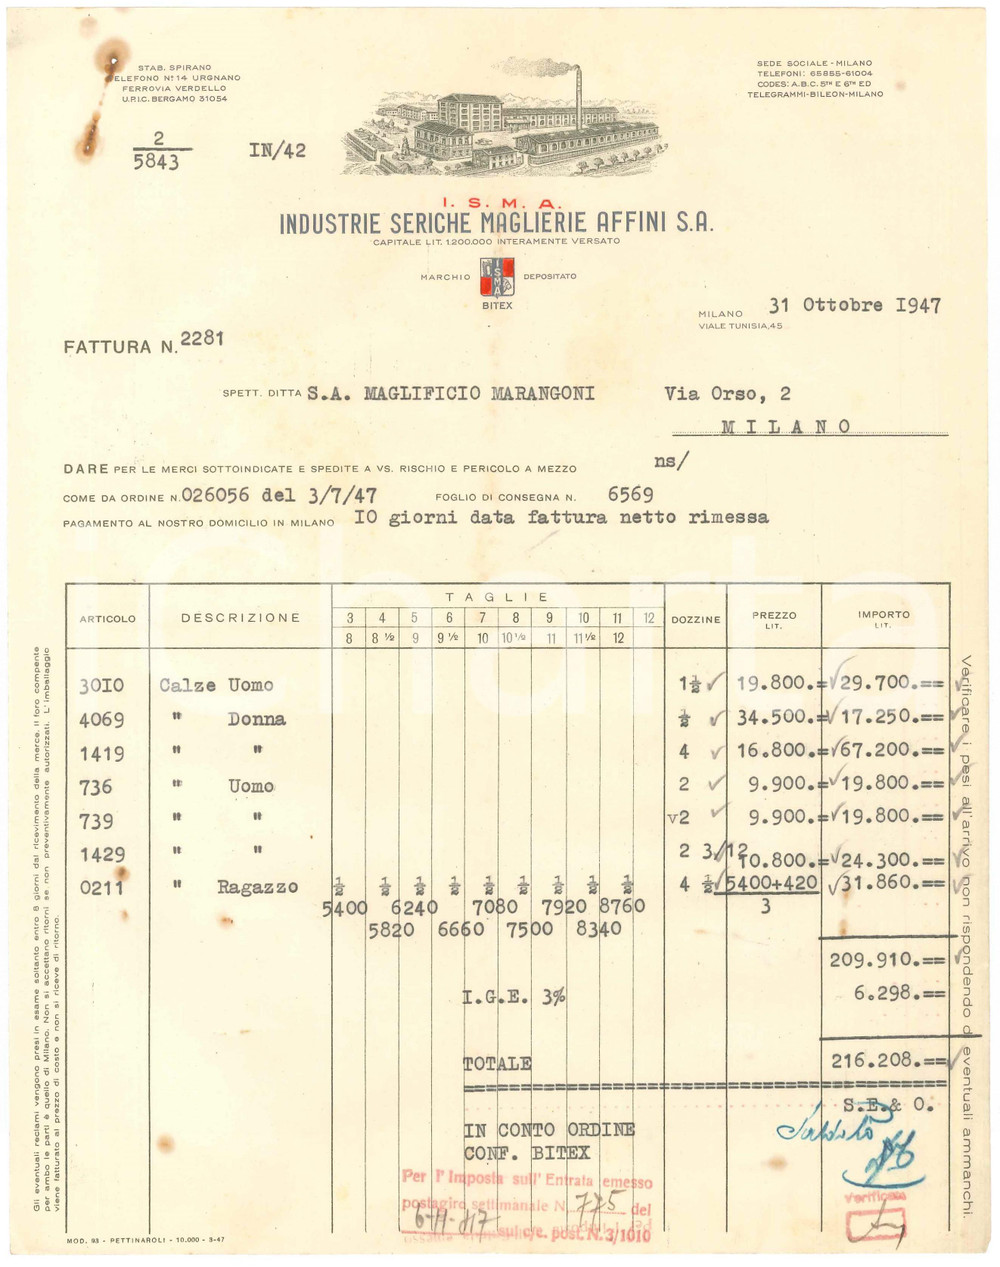 STAB. SPIRANO
TELEFONO Nº 14 URGNANO
FERROVIA VERDELLO
U.P.I.C. BERGAMO 31054
SEDE SOCIALE - MILANO
TELEFONI: 65855-61004
CODES: A.B.C. 5TH E 6TH ED
TELEGRAMMI-BILEON-MILANO
2
5843
IN/42
I. S. M. A.
INDUSTRIE SERICHE MAGLIERIE AFFINI S.A.
CAPITALE LIT. 1.200.000 INTERAMENTE VERSATO
MARCHIO ISMA DEPOSITATO
BITEX
MILANO 31 Ottobre 1947
VIALE TUNISIA, 45
FATTURA N. 2281
SPETT. DITTA S.A. MAGLIFICIO MARANGONI Via Orso, 2
MILANO
DARE PER LE MERCI SOTTOINDICATE E SPEDITE A VS. RISCHIO E PERICOLO A MEZZO ns/
COME DA ORDINE N. 026056 del 3/7/47 FOGLIO DI CONSEGNA N. 6569
PAGAMENTO AL NOSTRO DOMICILIO IN MILANO IO giorni data fattura netto rimessa
ARTICOLO DESCRIZIONE TAGLIE DOZZINE PREZZO LIT. IMPORTO LIT.
3 4 5 6 7 8 9 10 11 12
8 8 ½ 9 9 ½ 10 10 ½ 11 11 ½ 12
3OIO Calze Uomo 1½ 19.800.= 29.700.==
4069 " Donna ½ 34.500.= 17.250.==
1419 " " 4 16.800.= 67.200.==
736 " Uomo 2 9.900.= 19.800.==
739 " " v2 9.900.= 19.800.==
1429 " " 2 3/12 10.800.= 24.300.==
0211 " Ragazzo ½ ½ ½ ½ ½ ½ ½ ½ ½ 4 ½ 5400+420 31.860.==
5400 6240 7080 7920 8760 3
5820 6660 7500 8340
209.910.==
I.G.E. 3% 6.298.==
TOTALE 216.208.==
S.E.& O.
Saldato
IN CONTO ORDINE
CONF. BITEX
Per l'Imposta sull'Entrata emesso
postagiro settimanale N. 775 del
6-11-947 sul c/c. post. N. 3/1010
Verificato
Gli eventuali reclami vengono presi in esame soltanto entro 8 giorni dal ricevimento della merce. Il foro compente
per ambo le parti è quello di Milano. Non si accettano ritorni se non preventivamente autorizzati. L'imballaggio
viene fatturato al prezzo di costo e non si riceve di ritorno.
Verificare i pesi all'arrivo non rispondendo di eventuali ammanchi.
MOD. 93 - PETTINAROLI - 10.000 - 3-47